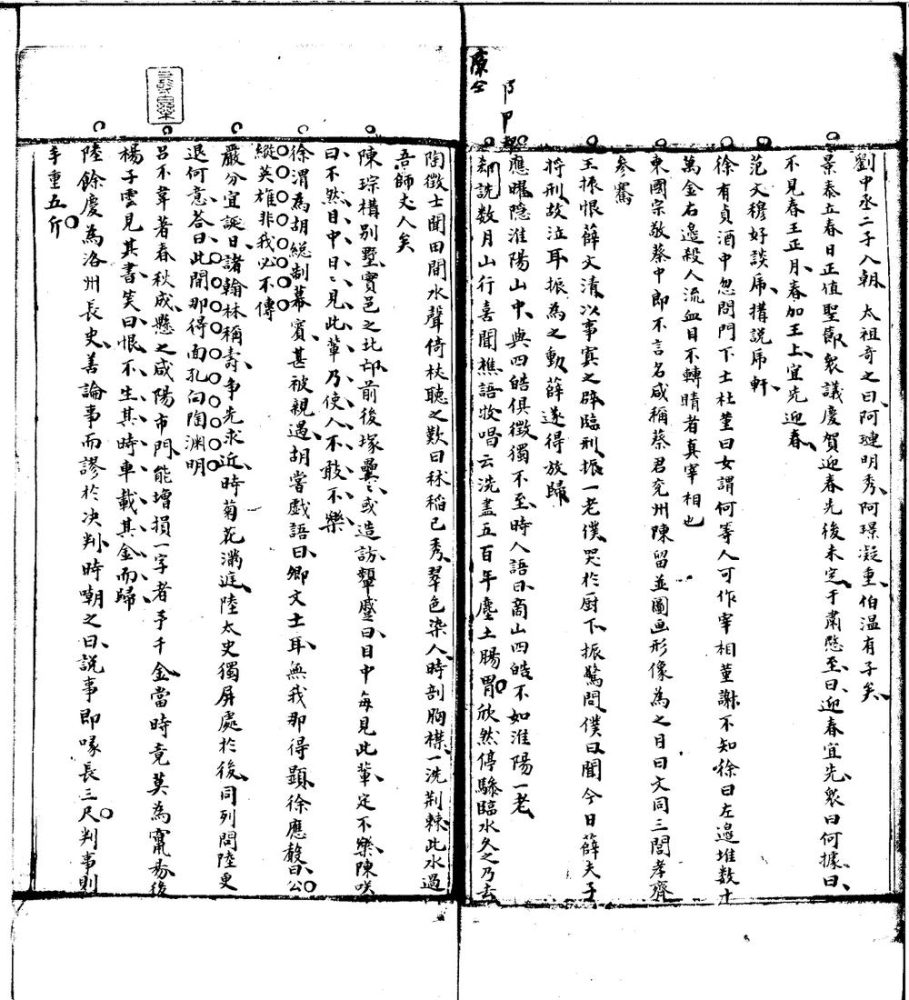 劉中丞二子入朝太祖奇之曰阿璉明秀阿璟凝重伯温有子矣
景泰立春日正值聖節衆議慶賀迎春先後未定于肅愍至曰迎春宜先衆曰何據曰
不見春王正月春加王上宜先迎春
范文穆好談席搆説席軒
徐有貞酒中忽問門下士杜堇曰女謂何等人可作宰相堇謝不知徐曰左邉堆数十
萬金右邉殺人流血目不轉睛者真宰相也
東國宗敬蔡中郎不言名咸稱蔡君兖州陳留並圖画形像為之目曰文同三閭孝齊
參騫
王振恨薛文清以事寘之辟臨刑振一老僕哭於厨下振驚問僕曰聞今日薛夫子
将刑故泣耳振為之動薛遂得放歸
應曜隐淮陽山中與四皓俱徵獨不至時人語曰商山四皓不如淮陽一老
郝詵数月山行喜聞樵語牧唱云洗盡五百年塵土腸胃欣然停驂臨水久之乃去
陶徵士聞田間水聲倚杖聽之歎曰秫稲已秀翠色染人時剖胸襟一洗荆棘此水過
吾師丈人矣
陳琮構别墅實邑之北邙前後塚纍〻或造訪顰蹙曰目中每見此輩定不樂陳咲
曰不然日中日〻見此輩乃使人不敢不樂
徐渭為胡総制幕賓甚被親遇胡嘗戯語曰卿文士耳無我那得顕徐應聲曰公
縱英雄非我必不傳
嚴分宜誕日諸翰林稱壽争先求近時菊花滿庭陸太史獨屏處於後同列問陸更
退何意荅曰此間那得面孔向陶渊明
吕不韋著春秋成懸之咸陽市門能增損一字者予千金當時竟莫為竄易後
楊子雲見其書笑曰恨不生其時車載其金而歸
陸餘慶為洛州長史善論事而謬於决判時嘲之曰説事即喙長三尺判事則
手重五斤